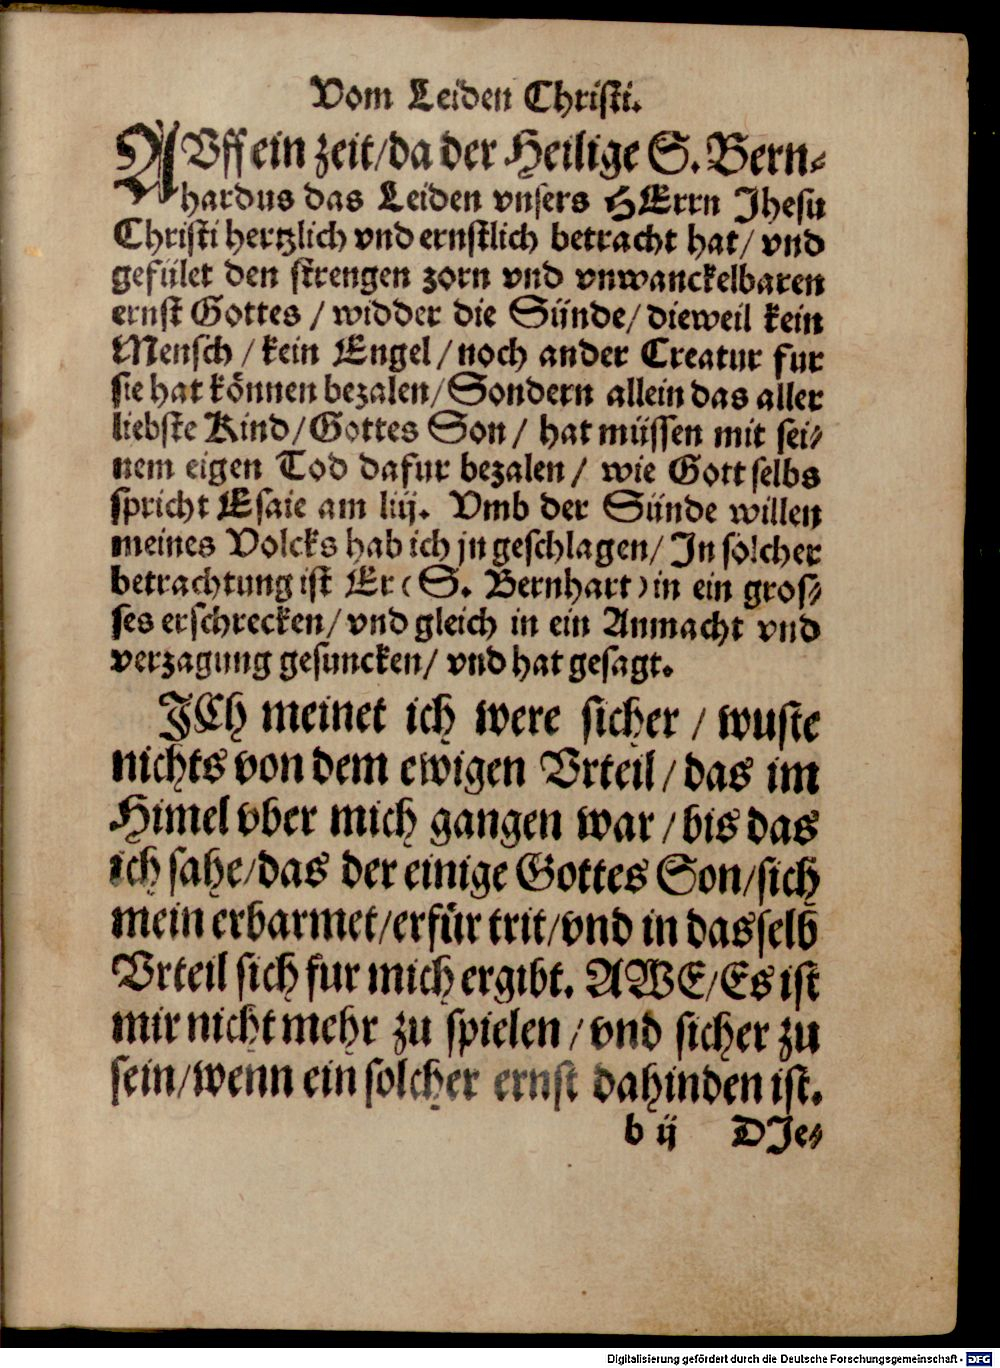 Vom Leiden Christi.
AVff ein zeit/da der Heilige S. Bern-
hardus das Leiden vnsers HErrn Jhesu
Christi hertzlich vnd ernstlich betracht hat/ vnd
gefület den strengen zorn vnd vnwanckelbaren
ernst Gottes / widder die Sünde/ dieweil kein
Mensch / kein Engel / noch ander Creatur fur
sie hat können bezalen/ Sondern allein das aller
liebste Kind/ Gottes Son / hat müssen mit sei-
nem eigen Tod dafur bezalen / wie Gott selbs
spricht Esaie am liij. Vmb der Sünde willen
meines Volcks hab ich jn geschlagen/ In solcher
betrachtung ist Er (S. Bernhart) in ein gros-
ses erschrecken/ vnd gleich in ein Anmacht vnd
verzagung gesuncken/ vnd hat gesagt.
ICh meinet ich were sicher / wuste
nichts von dem ewigen Vrteil / das im
Himel vber mich gangen war / bis das
ich sahe/das der einige Gottes Son/sich
mein erbarmet/erfür trit/vnd in dasselb
Vrteil sich fur mich ergibt. AWE/Es ist
mir nicht mehr zu spielen / vnd sicher zu
sein/wenn ein solcher ernst dahinden ist.
b ij DIe-
Digitalisierung gefördert durch die Deutsche Forschungsgemeinschaft - DFG